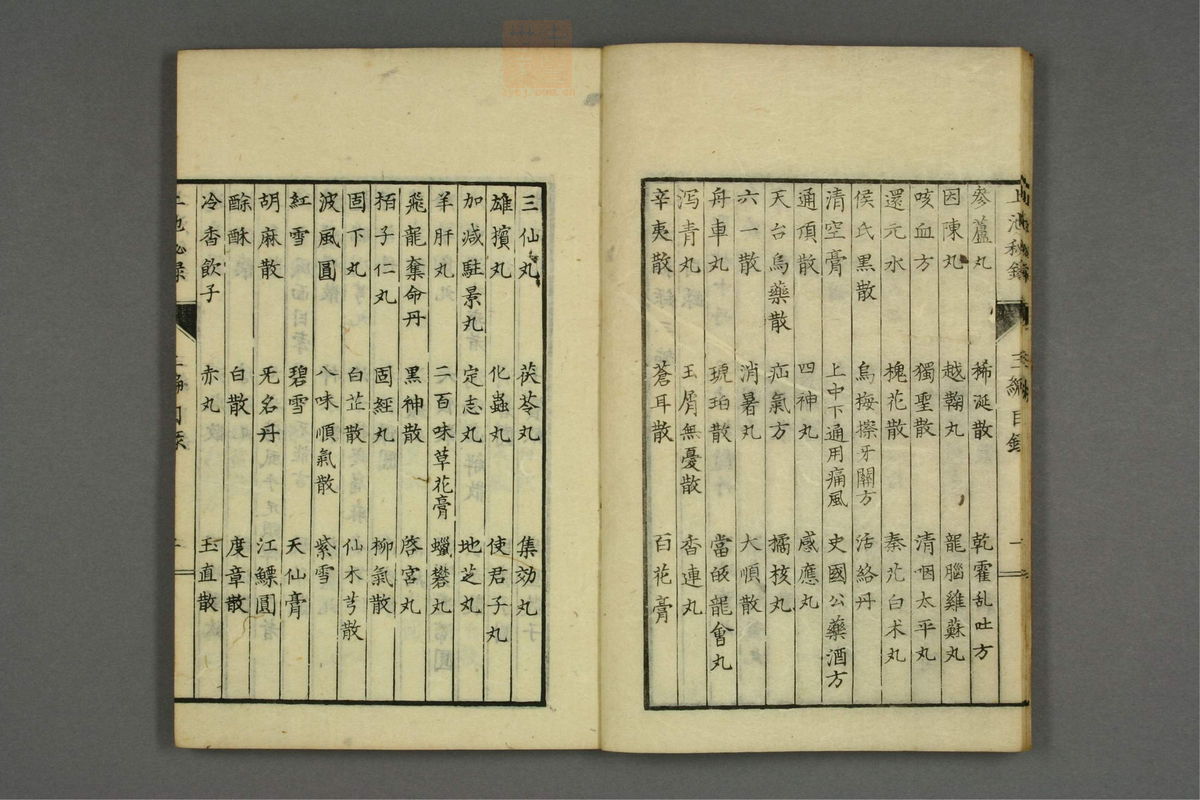 參蘆丸 稀涎散 乾霍乱吐方
因陳丸 越鞠丸 龍腦雞蘇丸
咳血方 獨聖散 清咽太平丸
還元水 槐花散 秦艽白术丸
侯氏黒散 烏梅擦牙關方 活絡丹
清空膏 上中下通用痛風 史國公藥酒方
通頂散 四神丸 感應丸
天台烏藥散 疝氣方 橘核丸
六一散 消暑丸 大順散
舟車丸 琥珀散 當皈龍會丸
泻青丸 玉屑無憂散 香連丸
辛夷散 蒼耳散 百花膏
三仙丸 茯苓丸 集効丸
雄擯丸 化蟲丸 使君子丸
加减駐景丸 定志丸 地芝丸
羊肝丸 二百味草花膏 蠟礬丸
飛龍奪命丹 黑神散 啓宮丸
栢子仁丸 固經丸 柳氣散
固下丸 白芷散 仙木芎散
波風圓 八味順氣散 紫雪
紅雪 碧雪 天仙膏
胡麻散 旡名丹 江鰾圓
酴酥 白散 度章散
冷香飲子 赤丸 玉直散